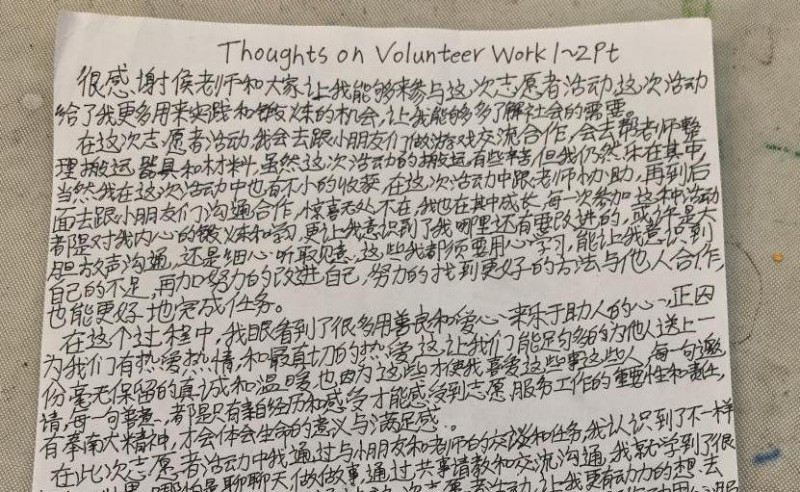 Thoughts on Volunteer Work 1~2Pt
很感谢侯老师和大家让我能够来参与这次志愿者活动这次活动
给了我更多用来实践和锻炼的机会,让我能够多了解社会的需要。
在这次志愿者活动我会去跟小朋友们做游戏交流合作,会去帮老师整
理搬运器具和材料,虽然这次活动的搬运有些辛苦但我仍然乐在其中,
当然我在这次活动中也有不小的收获,在这次活动中跟老师协助,再到后
面去跟小朋友们沟通合作,惊喜无处不在,我也在其中成长,每一次参加这种活动
都是对我内心的锻炼和学习,更让我意识到了我哪里还有要改进的,或许是大
胆放声沟通,还是细心听取意,这些我都须要用心学习,能让我意识到
自己的不足,再加努力的改进自己,努力的找到更好的方法与他人合作,
也能更好地完成任务。
在这个过程中,我眼看到了很多用善良和爱心来乐于助人的心,正因
为我们有热爱热情,和最真切的热爱,这让我们能足够多的为他人送上一
份毫无保留的真诚和温暖也因为这些才使我喜爱这些事这些人,每一句邀
请,每一句善意,都是只有亲自经历和感受才能感受到志愿服务工作的重要性和责任,
有奉南大精神,才会体会生命的意义与满足感。
在此次志愿者活动中我通过与小朋友和老师的交谈和任务,我认识到了不一样
哪怕是聊聊天做做事通过共事请教和交流沟通,我就学到了很
次志愿者活动,让我更有动力的想去